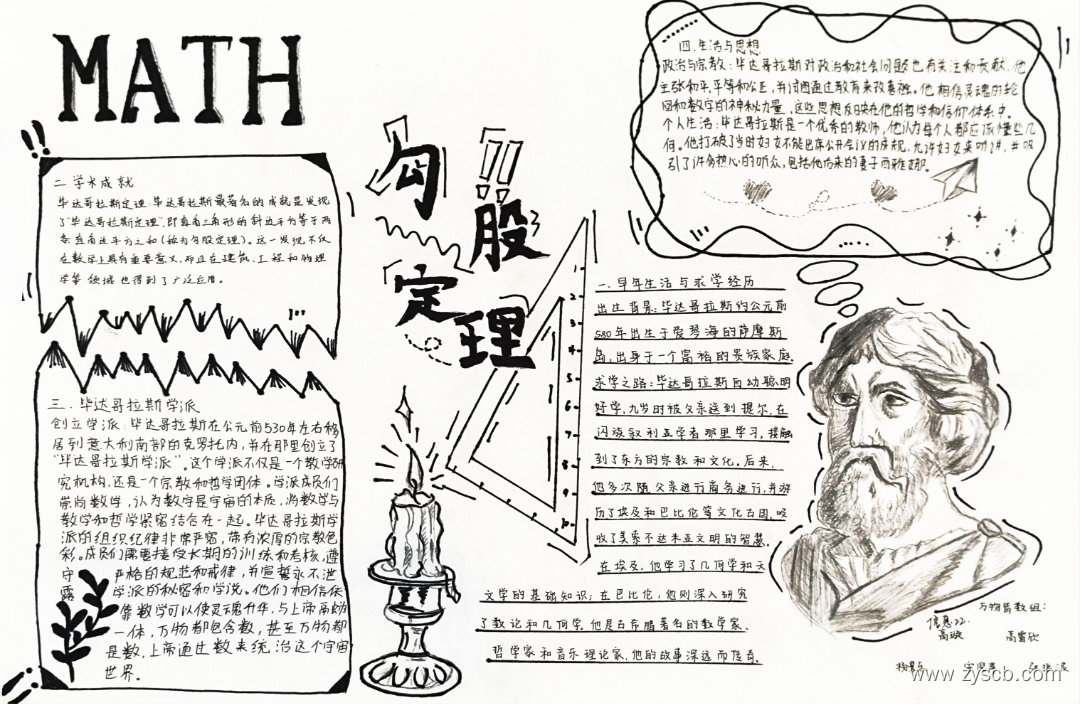 MATH
勾股定理
二.学术成就
毕达哥拉斯定理:毕达哥拉斯最著名的成就是发现
了"毕达哥拉斯定理",即直角三角形的斜边平方等于两
条直角边平方之和(称为勾股定理)。这一发现不仅
在数学上具有重要意义,而且在建筑、工程和物理
学等领域也得到了广泛应用。
三.毕达哥拉斯学派
创立学派:毕达哥拉斯在公元前530年左右移
居到意大利南部的克罗托内,并在那里创立了
"毕达哥拉斯学派"。这个学派不仅是一个数学研
究机构,还是一个宗教和哲学团体。学派成员们
崇尚数学,认为数字是宇宙的本质,将数学与
数学和哲学紧密结合在一起。毕达哥拉斯学
派的组织纪律非常严密,带有浓厚的宗教色
彩。成员们需要接受长期的训练和考核,遵
守严格的规范和戒律,并宣誓永不泄
露学派的秘密和学说。他们相信依
靠数学可以使灵魂升华,与上帝融为
一体,万物都包含数,甚至万物都
是数,上帝通过数来统治这个宇宙
世界。
一.早年生活与求学经历
出生背景:毕达哥拉斯约公元前
580年出生于爱琴海的萨摩斯
岛,出身于一个富裕的贵族家庭.
求学之路:毕达哥拉斯自幼聪明
好学,九岁时被父亲送到提尔,在
闪族叙利亚学者那里学习,接触
到了东方的宗教和文化。后来,
他多次随父亲进行商务旅行,并游
历了埃及和巴比伦等文化古国,吸
收了美索不达米亚文明的智慧.
在埃及,他学习了几何学和天
文学的基础知识;在巴比伦,他则深入研究
了数论和几何学.他是古希腊著名的数学家、
哲学家和音乐理论家,他的故事深远而传奇.
四.生活与思想
政治与宗教:毕达哥拉斯对政治和社会问题也有关注和贡献.他
主张和平,平等和公正,并试图通过教育来改善社会。他相信灵魂的轮
回和数字的神秘力量.这些思想反映在他的哲学和信仰体系中。
个人生活:毕达哥拉斯是一个优秀的教师,他认为每个人都应该懂些几
何。他打破了当时妇女不能出席公开会议的成规,允许妇女来听讲,并吸
引了许多热心的听众,包括他后来的妻子西雅娜。
1
2
3
4
5
6
7
8
9
10
万物皆数组:
www.zyscb.com